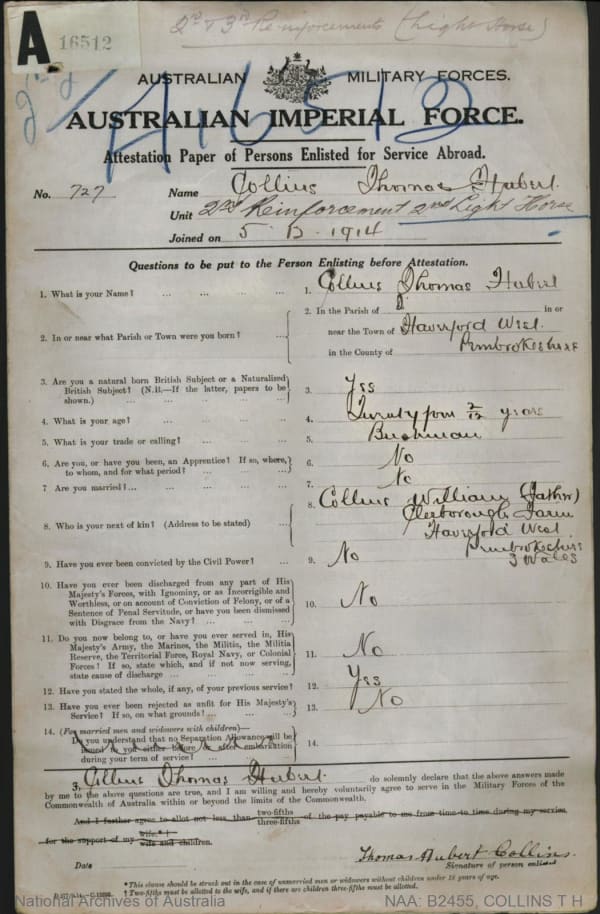 2nd & 3rd Reinforcements (Light Horse)
A 16512
A16512
AUSTRALIAN MILITARY FORCES.
AUSTRALIAN IMPERIAL FORCE.
Attestation Paper of Persons Enlisted for Service Abroad.
No. 727 Name Collins Thomas Hubert.
Unit 2nd Reinforcement 2nd Light Horse
Joined on 5. 12. 1914
Questions to be put to the Person Enlisting before Attestation.
1. What is your Name? ... ... ... ... 1. Collins Thomas Hubert
2. In or near what Parish or Town were you born? ... 2. In the Parish of in or
near the Town of Haverford West.
in the County of Pembrokeshire
3. Are you a natural born British Subject or a Naturalised
British Subject? (N.B.—If the latter, papers to be
shown.) 3. Yes
4. What is your age? ... 4. Twenty four 2/12 years
5. What is your trade or calling? ... 5. Bushman
6. Are you, or have you been, an Apprentice? If so, where,
to whom, and for what period? ... 6. No
7 Are you married? ... 7. No
8. Who is your next of kin? (Address to be stated) 8. Collins William (Father)
Farm
Haverford West
Pembrokeshire
S Wales
9. Have you ever been convicted by the Civil Power? 9. No
10. Have you ever been discharged from any part of His
Majesty's Forces, with Ignominy, or as Incorrigible and
Worthless, or on account of Conviction of Felony, or of a
Sentence of Penal Servitude, or have you been dismissed
with Disgrace from the Navy? ... 10. No
11. Do you now belong to, or have you ever served in, His
Majesty's Army, the Marines, the Militia, the Militia
Reserve, the Territorial Force, Royal Navy, or Colonial
Forces? If so, state which, and if not now serving,
state cause of discharge ... 11. No
12. Have you stated the whole, if any, of your previous service? 12. Yes
13. Have you ever been rejected as unfit for His Majesty's
Service? If so, on what grounds? ... 13. No
14. (For married men and widowers with children)—
Do you understand that no Separation Allowance will be
issued to you either before or after embarkation
during your term of service? ... 14.
I, Collins Thomas Hubert. do solemnly declare that the above answers made
by me to the above questions are true, and I am willing and hereby voluntarily agree to serve in the Military Forces of the
Commonwealth of Australia within or beyond the limits of the Commonwealth.
And I further agree to allot not less than two-fifths three-fifths of the pay payable to me from time to time during my service
for the support of my wife* † wife and children.
Date
Thomas Hubert Collins.
Signature of person enlisted
* This clause should be struck out in the case of unmarried men or widowers without children under 18 years of age.
† Two-fifths must be allotted to the wife, and if there are children three-fifths must be allotted.
National Archives of Australia NAA: B2455, COLLINS T H